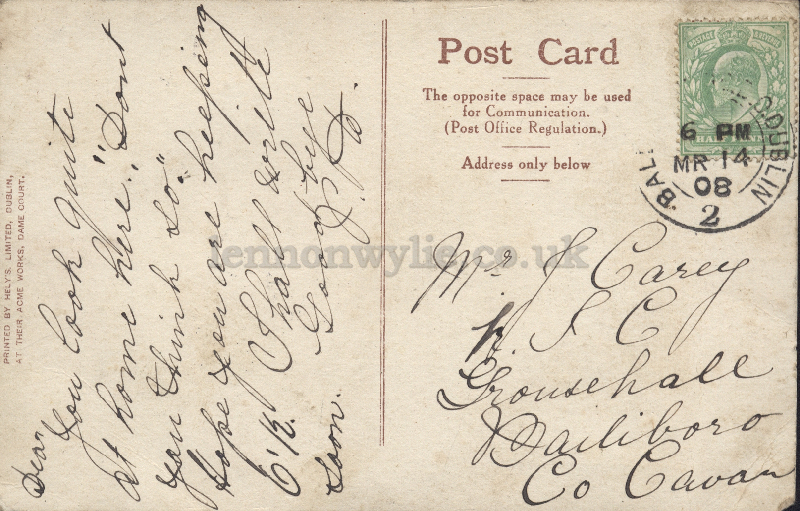 PRINTED BY HELY'S. LIMITED, DUBLIN,
AT THEIR ACME WORKS, DAME COURT.
Dear
You look quite
at home here. "Dont
you think so"
Hope you are keeping
O'K. I shall write
soon. Good bye
J.
Post Card
The opposite space may be used
for Communication.
(Post Office Regulation.)
Address only below
POSTAGE REVENUE
HALF
BAL
DUBLIN
6 PM
MR 14
08
2
Mr J Carey
S C
Grousehall
Bailiboro
Co Cavan
lennonwylie.co.uk